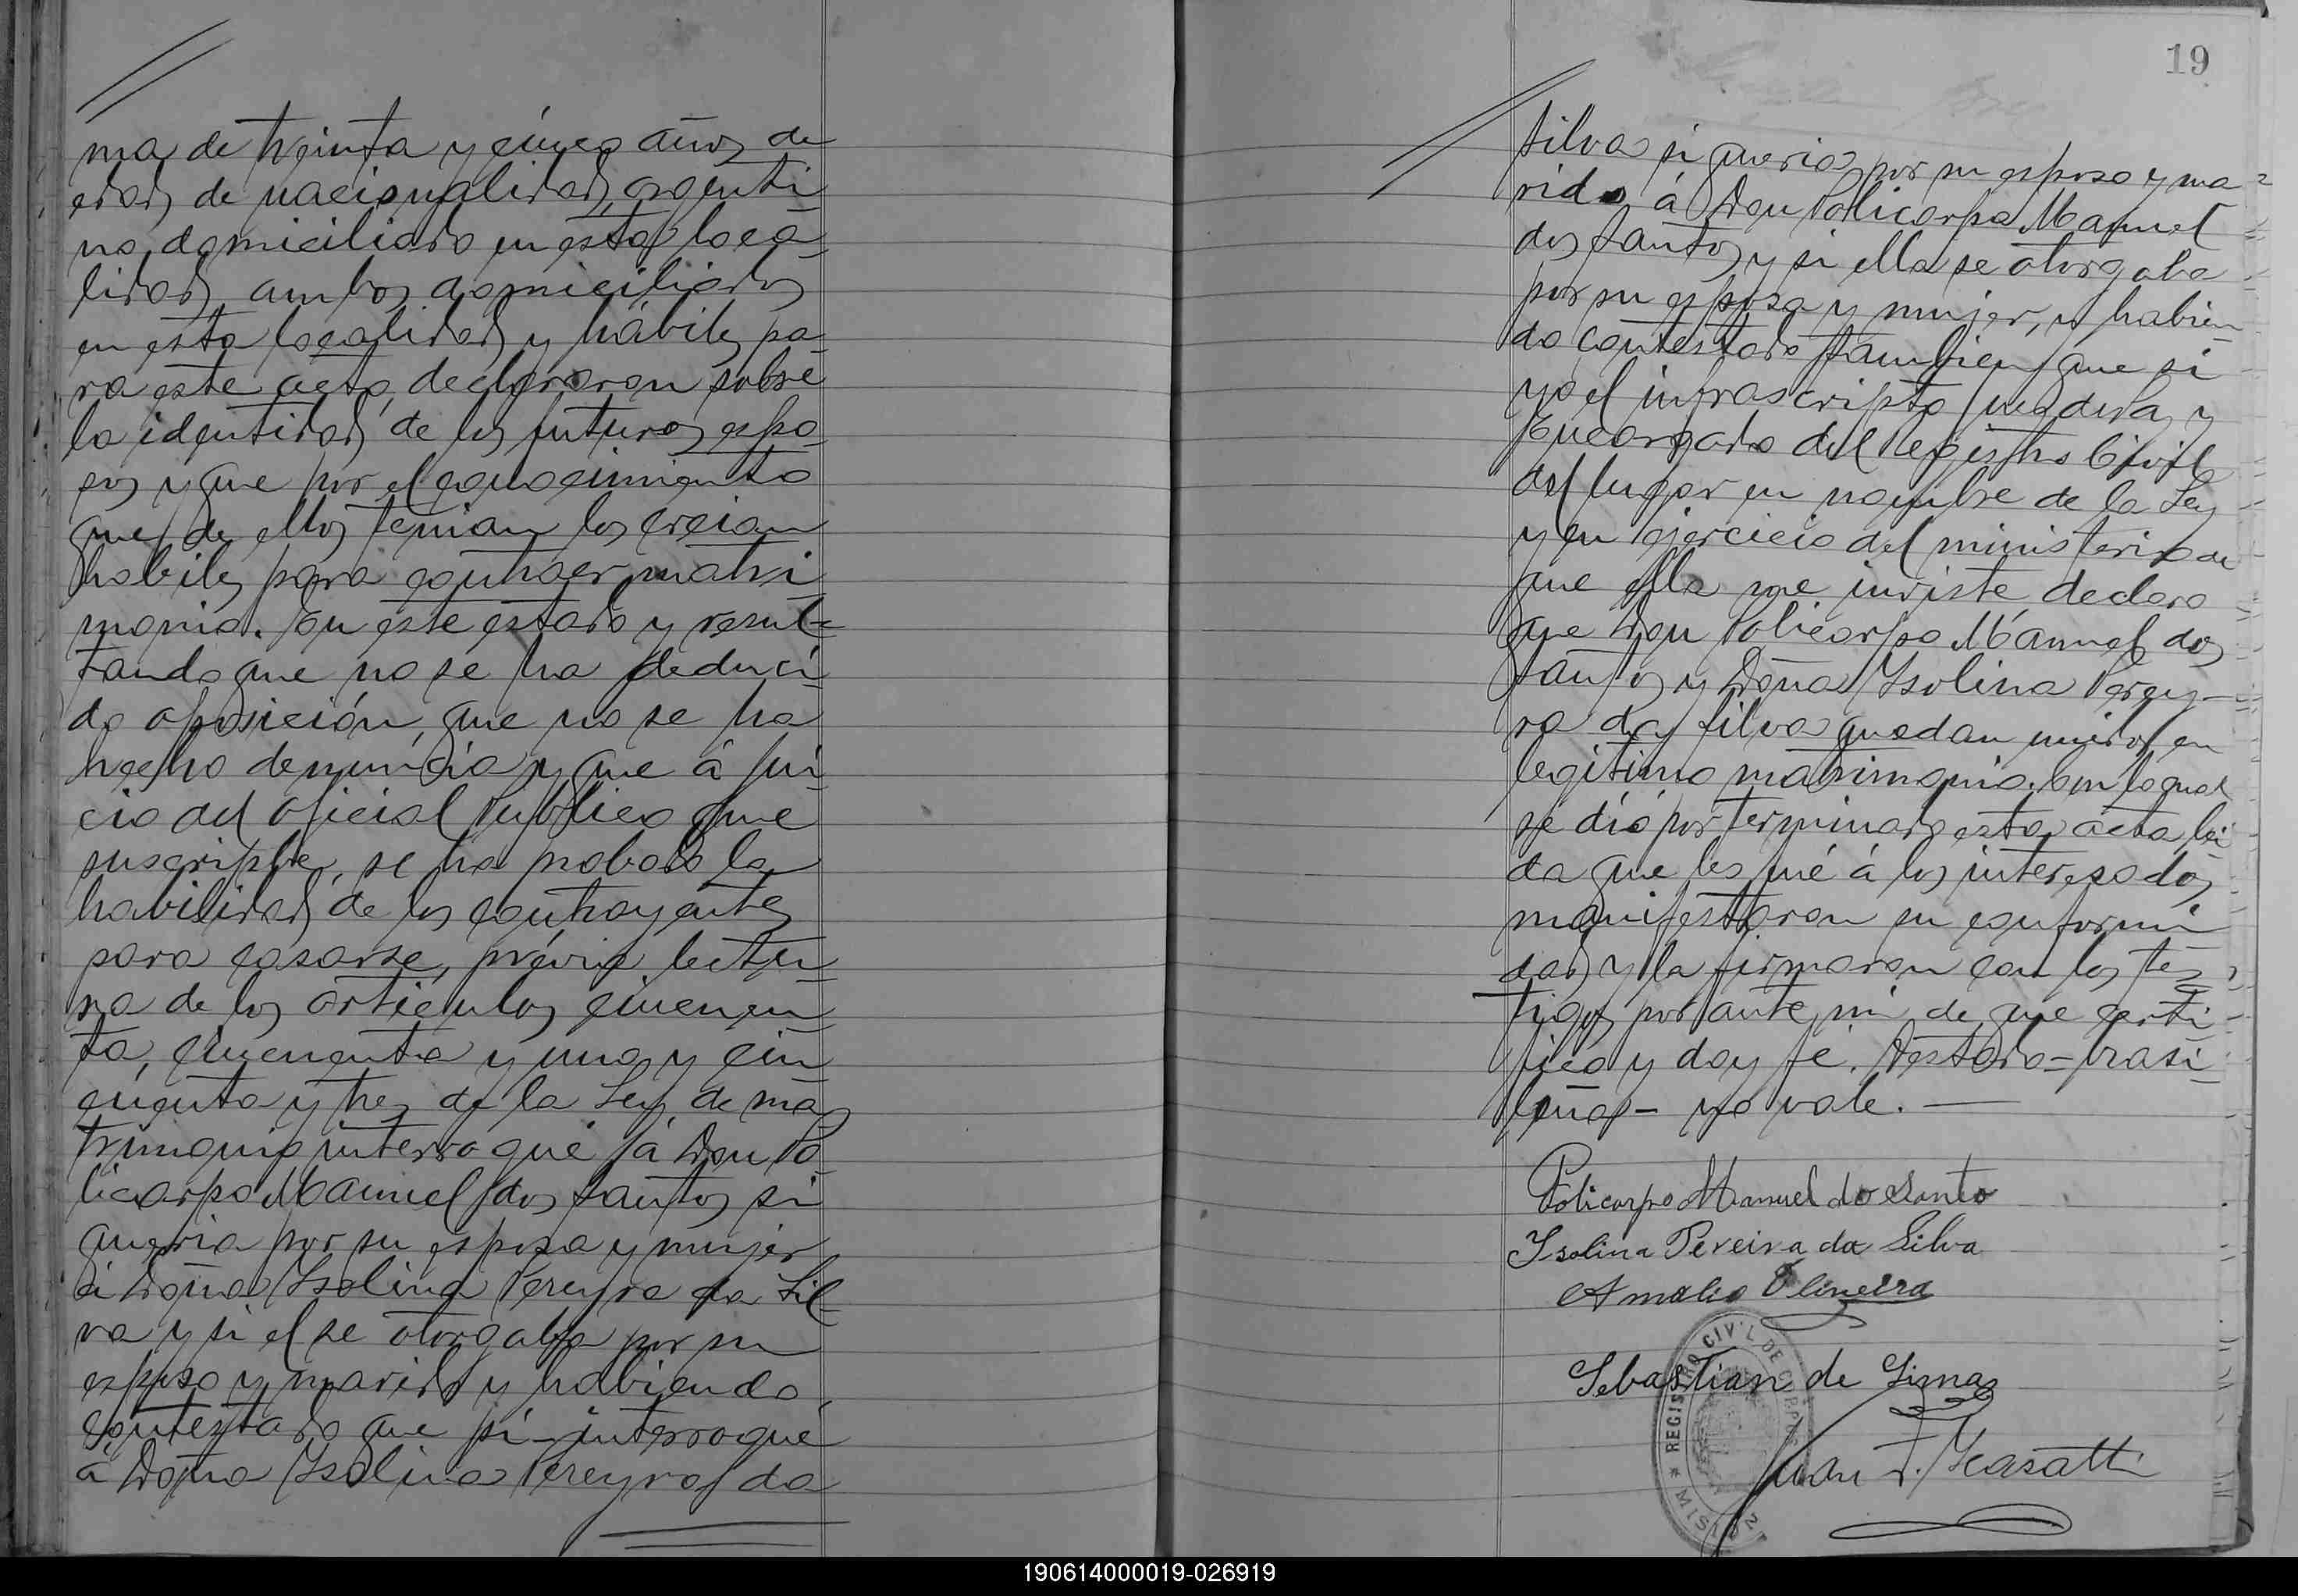 ma, de treinta y cinco años de
edad, de nacionalidad argenti
no, domiciliado en esta loca
lidad, ambos domiciliados
en esta localidad y hábiles pa
ra este acto, declararon sobre
la identidad de los futuros espo
sos y que por el conocimiento
que de ellos tenian los creian
habiles para contraer matri
monio. En este estado y resul=
tando que no se ha deduci
do oposición, que no se ha
hecho denuncia y que á jui
cio del oficial Publico que
suscribe, se ha probado la
habilidad de los contrayentes
para casarse, prévia lectu
ra de los articulos cincuen
ta, cincuenta y uno y cin
cuenta y tres de la Ley de ma
trimonio interrogué á Don Po
licarpo Manuel dos Santos si
queria por su esposa y mujer
á Doña Isolina Pereyra da Sil=
va y si el se otorgaba por su
esposo y marido y habiendo
contestado que si interrogué
á Doña Isolina Pereyra da
19
Silva si queria por su esposo y ma=
rido á Don Policarpo Manuel
dos Santos y si ella se otorgaba
por su esposa y mujer, y habien
do contestado tambien que si
yo el infrascripto Juez de Paz y
Encargado del Registro Civil
del lugar en nombre de la Ley
y en ejercicio del ministerio de
que ella me inviste declaro
que Don Policarpo Manuel dos
Santos y Doña Isolina Perey-
ra da Silva quedan unidos en
legitimo matrimonio. Con lo cual
se dió por terminado esta acta lei
da que les fué á los interesados,
manifestaron su conformi
dad y la firmaron con los tes
tigos por ante mi de que certi
fico y doy fé. Testado=brasi
leña- no vale.
Policarpo Manuel do Santo
Isolina Pereira da Silva
Amalio Olineira
REGISTRO CIVIL DE
MISIONES
Sebastian de Lima
Juan
190614000019-026919